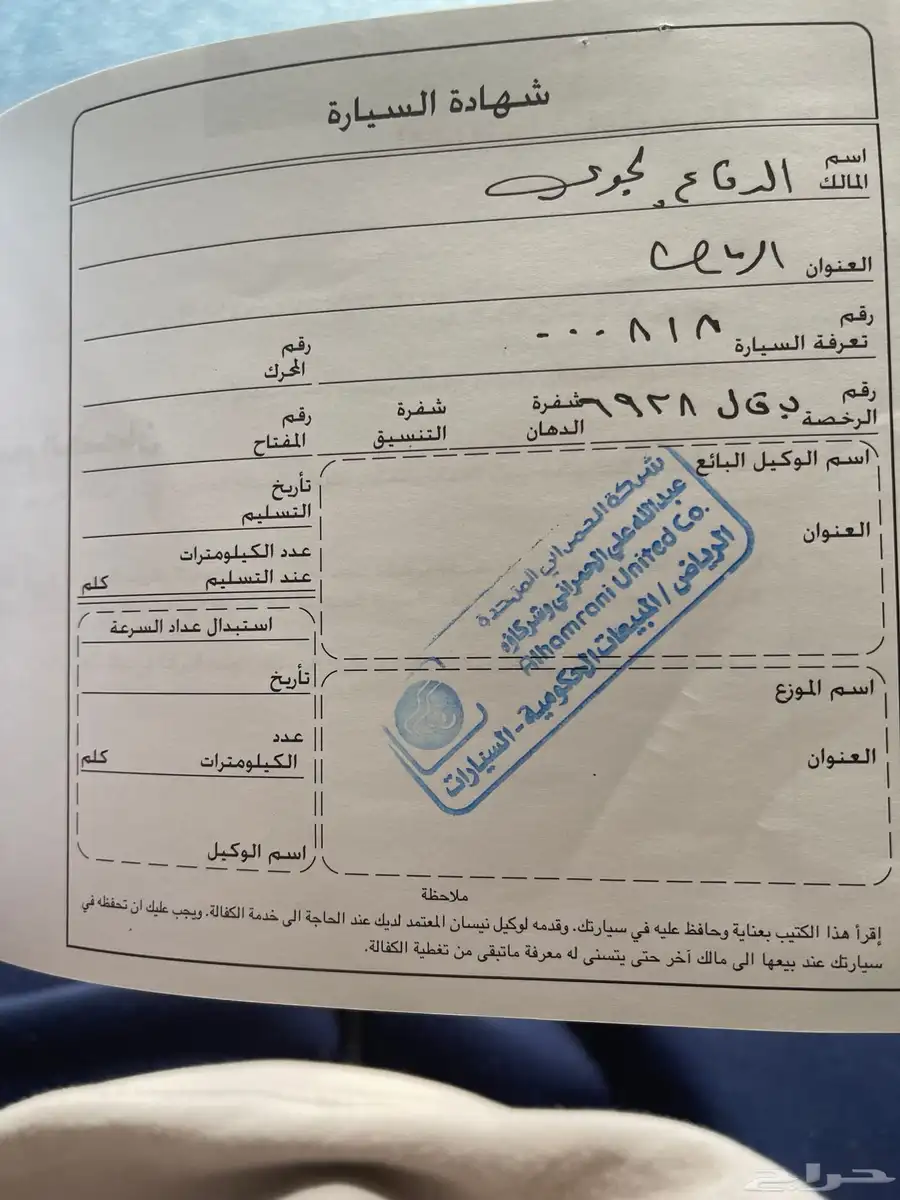 شهادة السيارة
اسم المالك الدفاع الجوي
العنوان الرياض
رقم تعرفة السيارة ٨١٨
رقم المحرك
رقم الرخصة ٦٩٢٨
شفرة الدهان
شفرة التنسيق
رقم المفتاح
اسم الوكيل البائع
العنوان
تأريخ التسليم
عدد الكيلومترات عند التسليم كلم
شركة الحمراني المتحدة
عبدالله علي الحمراني وشركاؤه
Alhamrani United Co.
الرياض / المبيعات الحكومية - السيارات
استبدال عداد السرعة
تأريخ
عدد الكيلومترات كلم
اسم الوكيل
اسم الموزع
العنوان
ملاحظة
إقرأ هذا الكتيب بعناية وحافظ عليه في سيارتك. وقدمه لوكيل نيسان المعتمد لديك عند الحاجة الى خدمة الكفالة. ويجب عليك ان تحفظه في
سيارتك عند بيعها الى مالك آخر حتى يتسنى له معرفة ماتبقى من تغطية الكفالة.
حراج